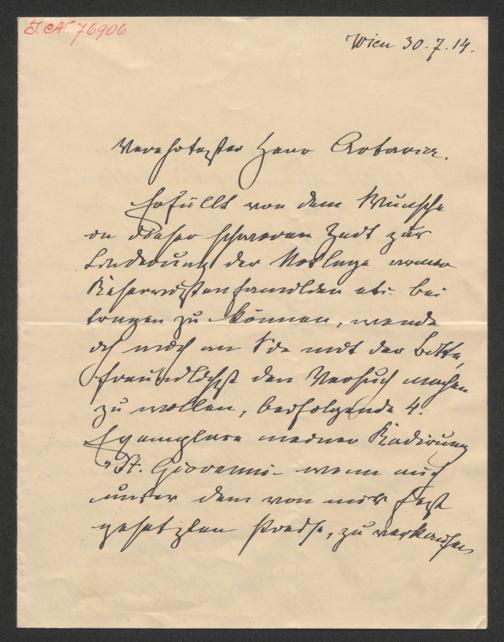 I. N 76906
Wien 30.7.14.
Verehrtester Herr Artaria.
Erfüllt von dem Wunsche
in dieser schweren Zeit zur
Linderung der Notlage armer
Reservistenfamilien etc. bei
tragen zu können, wende
ich mich an Sie mit der Bitte,
freundlichst den Versuch machen
zu wollen, beifolgende 4.
Exemplare meiner Radierung
"St. Giovanni - wenn auch
unter dem von mir fest
gesetzten Preise, zu verkaufen